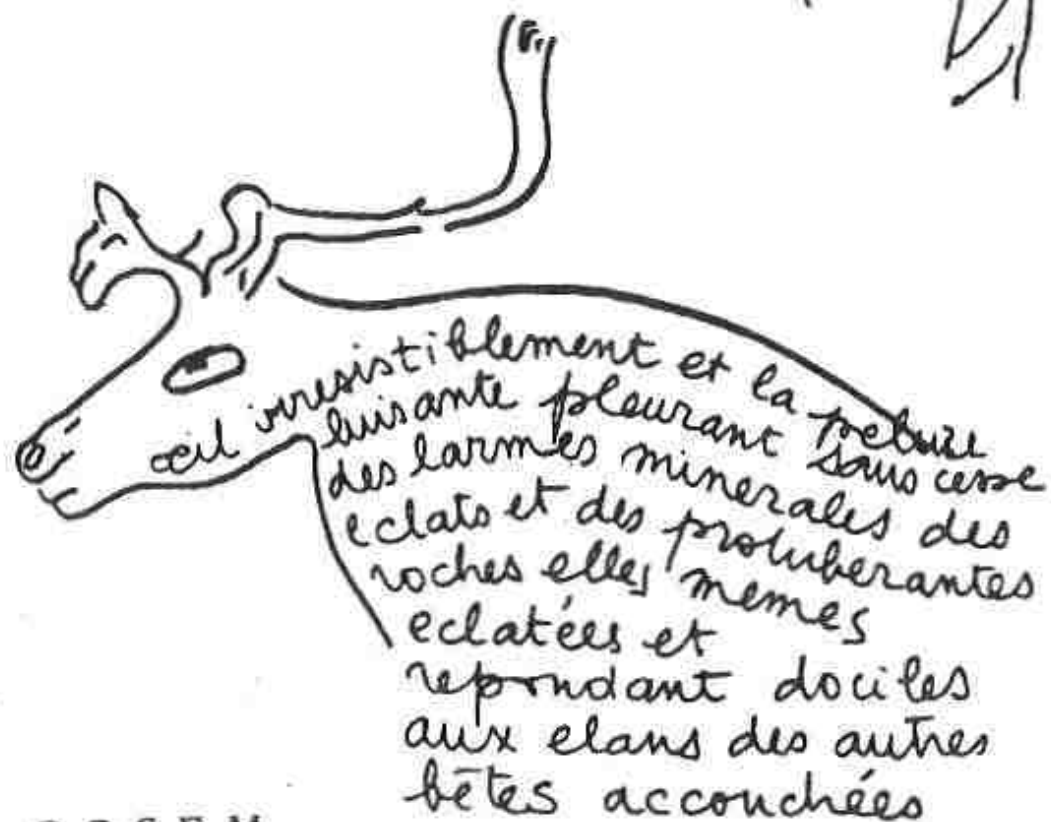 œil irresistiblement et la pelure
luisante pleurant sans cesse
des larmes minerales des
eclats et des protuberantes
roches elles memes
eclatées et
repondant dociles
aux elans des autres
bêtes accouchées